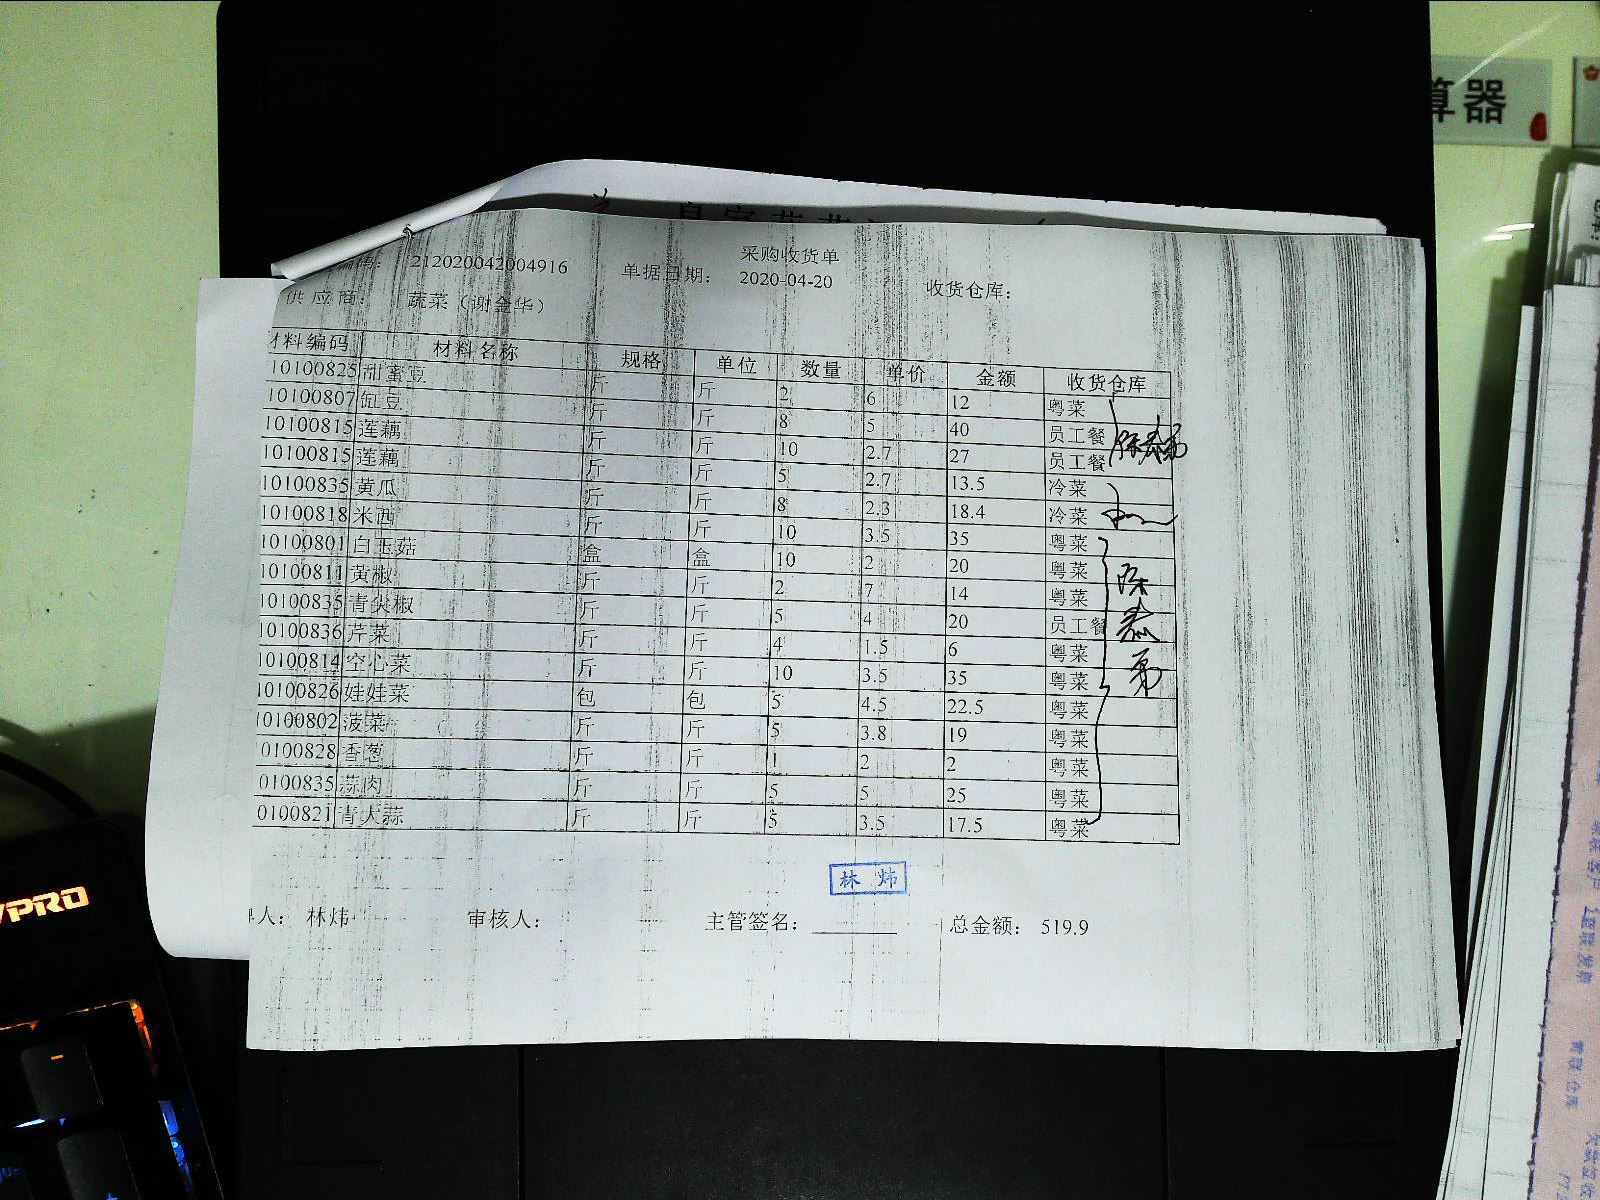 算器
采购收货单
编码： 212020042004916 单据日期： 2020-04-20 收货仓库：
供应商： 蔬菜（谢金华）
材料编码 材料名称 规格 单位 数量 单价 金额 收货仓库
10100825 甜蜜豆 斤 斤 2 6 12 粤菜
10100807 缸豆 斤 斤 8 5 40 员工餐
10100815 莲藕 斤 斤 10 2.7 27 员工餐
10100815 莲藕 斤 斤 5 2.7 13.5 冷菜
10100835 黄瓜 斤 斤 8 2.3 18.4 冷菜
10100818 米西 斤 斤 10 3.5 35 粤菜
10100801 白玉菇 盒 盒 10 2 20 粤菜
10100811 黄椒 斤 斤 2 7 14 粤菜
10100835 青尖椒 斤 斤 5 4 20 员工餐
10100836 芹菜 斤 斤 4 1.5 6 粤菜
10100814 空心菜 斤 斤 10 3.5 35 粤菜
10100826 娃娃菜 包 包 5 4.5 22.5 粤菜
10100802 菠菜 斤 斤 5 3.8 19 粤菜
0100828 香葱 斤 斤 1 2 2 粤菜
0100835 蒜肉 斤 斤 5 5 25 粤菜
0100821 青大蒜 斤 斤 5 3.5 17.5 粤菜
林 炜
人： 林炜 审核人： 主管签名： 总金额： 519.9
PRO